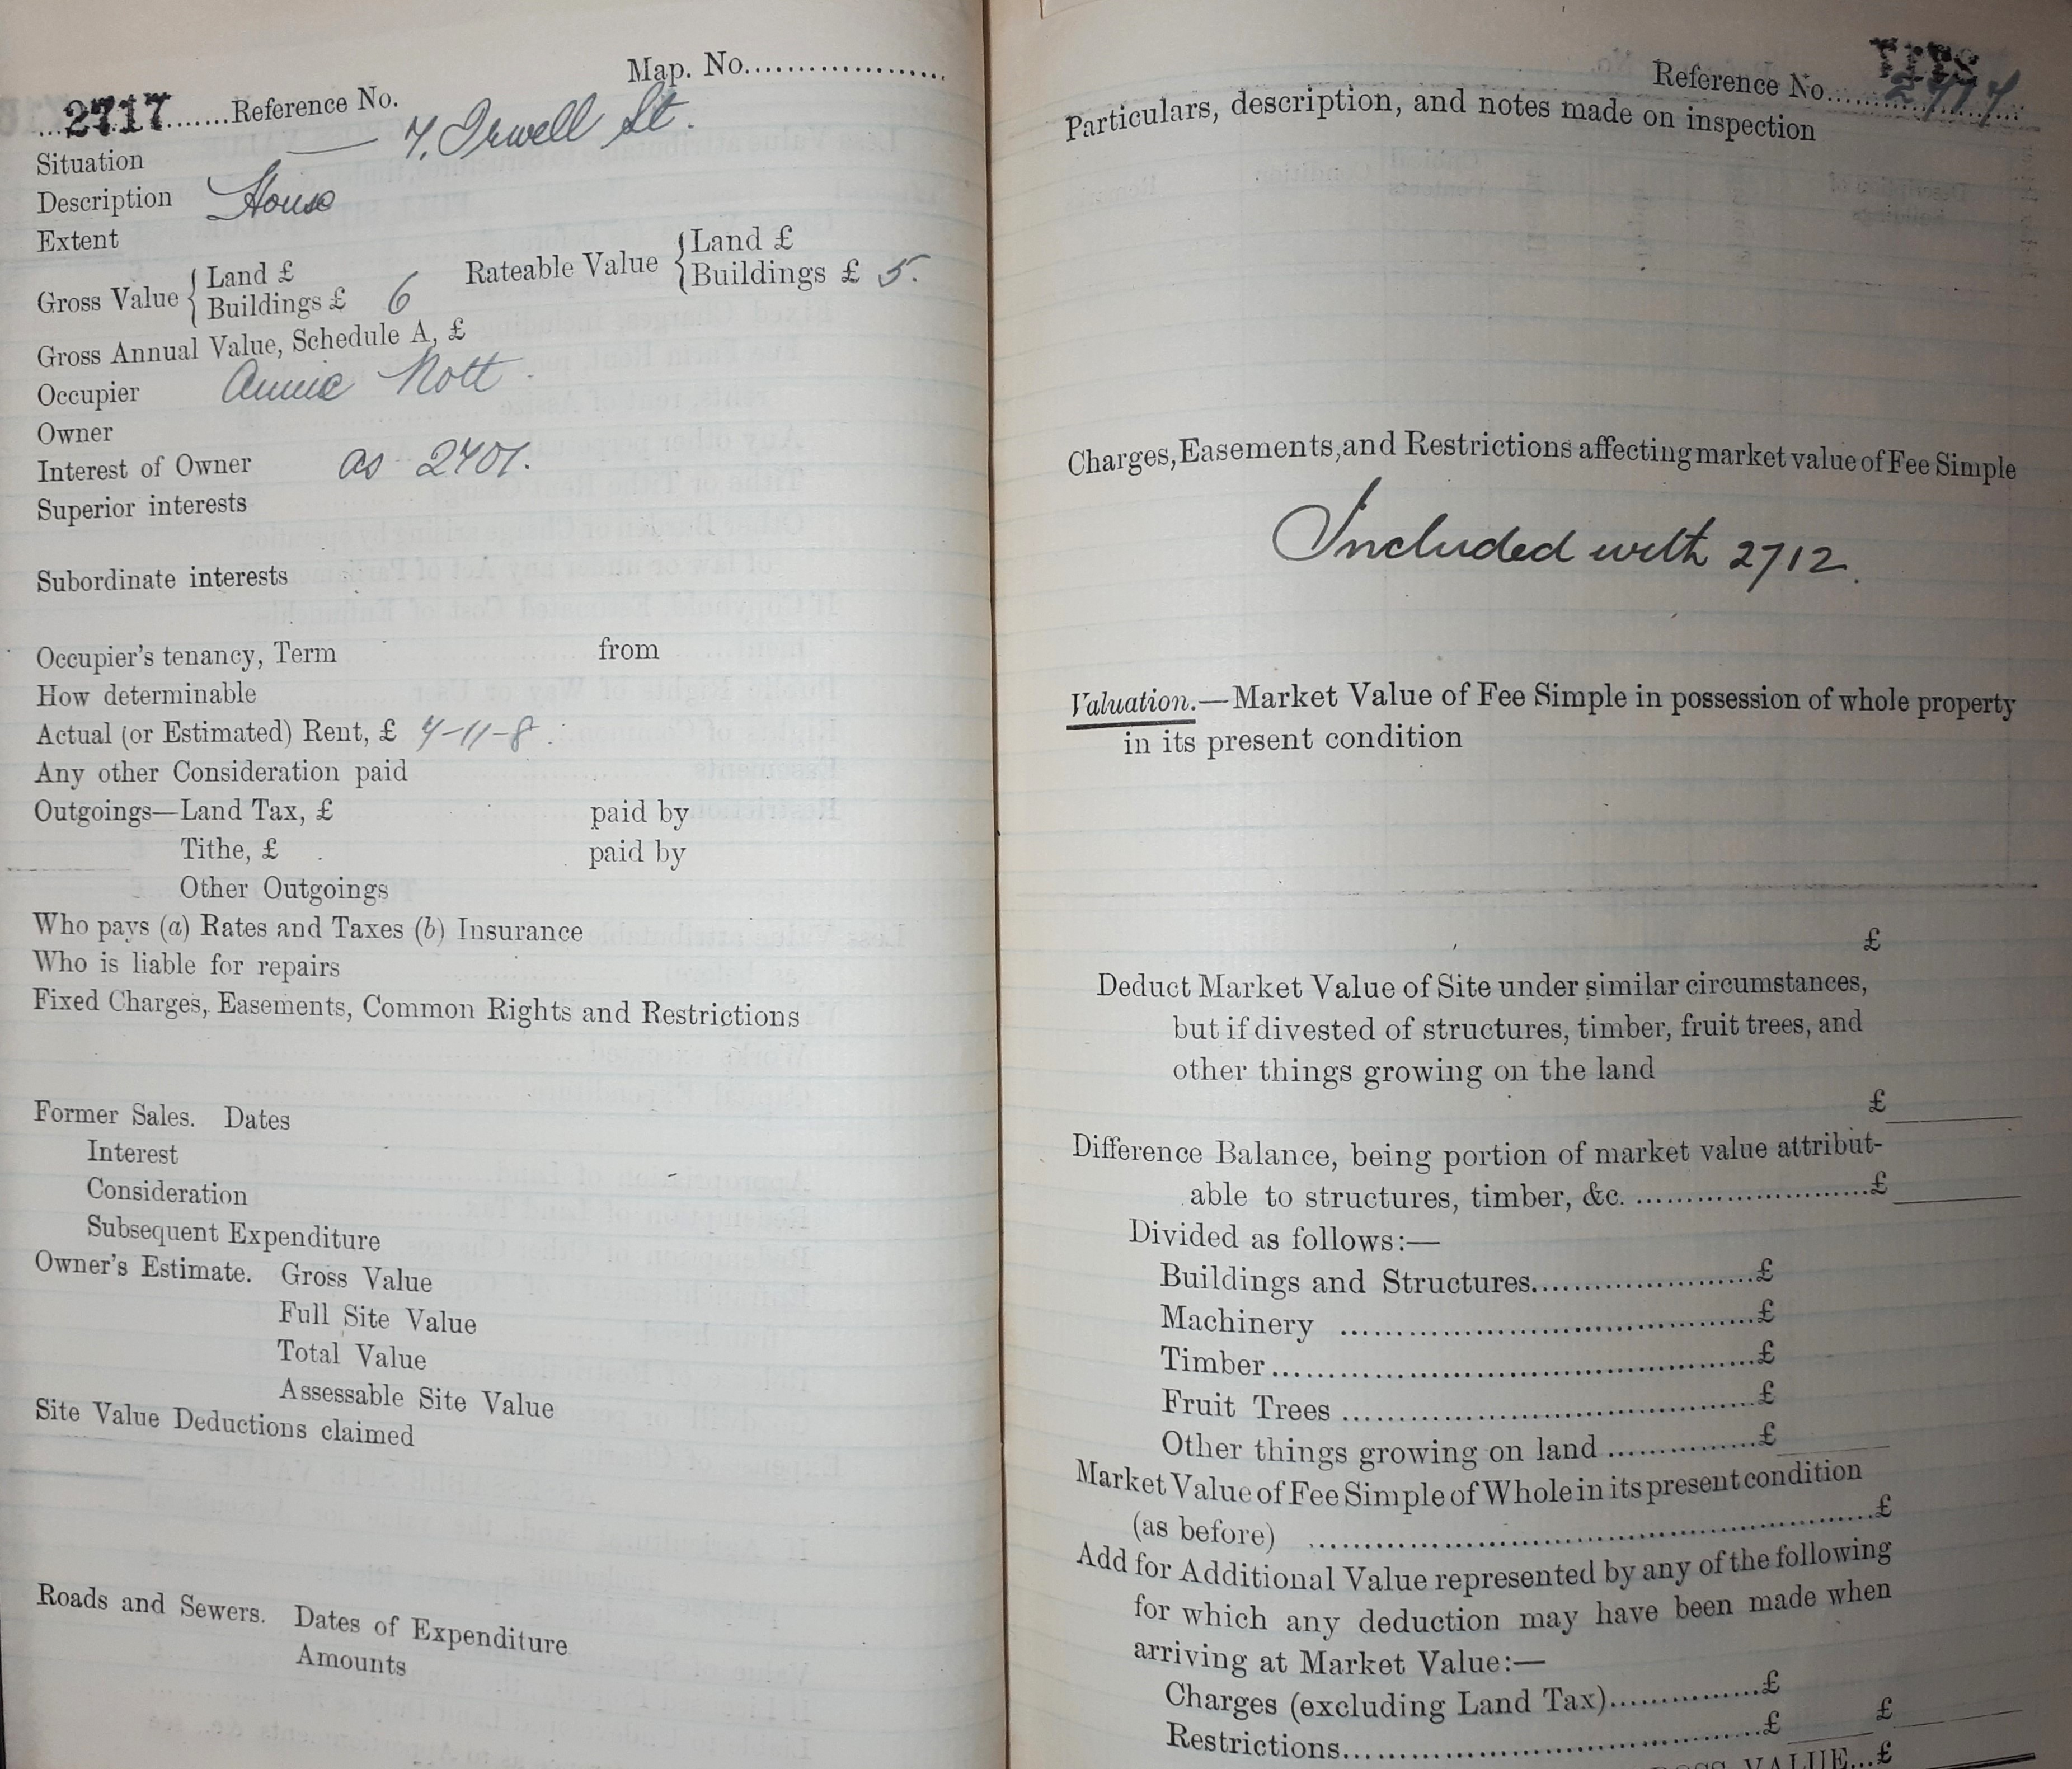 Map. No....................
...2717......Reference No.
Situation 7, Irwell St.
Description House
Extent
Gross Value { Land £
Buildings £ 6
Rateable Value { Land £
Buildings £ 5.
Gross Annual Value, Schedule A, £
Occupier Annie Nott.
Owner
Interest of Owner as 2701.
Superior interests
Subordinate interests
Occupier's tenancy, Term from
How determinable
Actual (or Estimated) Rent, £ 7-11-8.
Any other Consideration paid
Outgoings—Land Tax, £ paid by
Tithe, £ paid by
Other Outgoings
Who pays (a) Rates and Taxes (b) Insurance
Who is liable for repairs
Fixed Charges, Easements, Common Rights and Restrictions
Former Sales. Dates
Interest
Consideration
Subsequent Expenditure
Owner's Estimate. Gross Value
Full Site Value
Total Value
Assessable Site Value
Site Value Deductions claimed
Roads and Sewers. Dates of Expenditure
Amounts
Reference No.....2717
Particulars, description, and notes made on inspection
Charges, Easements, and Restrictions affecting market value of Fee Simple
Included with 2712.
Valuation.—Market Value of Fee Simple in possession of whole property
in its present condition
£
Deduct Market Value of Site under similar circumstances,
but if divested of structures, timber, fruit trees, and
other things growing on the land
£
Difference Balance, being portion of market value attribut-
able to structures, timber, &c. ...........................£
Divided as follows:—
Buildings and Structures.........................£
Machinery .............................................£
Timber.....................................................£
Fruit Trees ..............................................£
Other things growing on land .................£
Market Value of Fee Simple of Whole in its present condition
(as before) ...............................................................£
Add for Additional Value represented by any of the following
for which any deduction may have been made when
arriving at Market Value:—
Charges (excluding Land Tax)................£
Restrictions..............................................£ £
VALUE...£